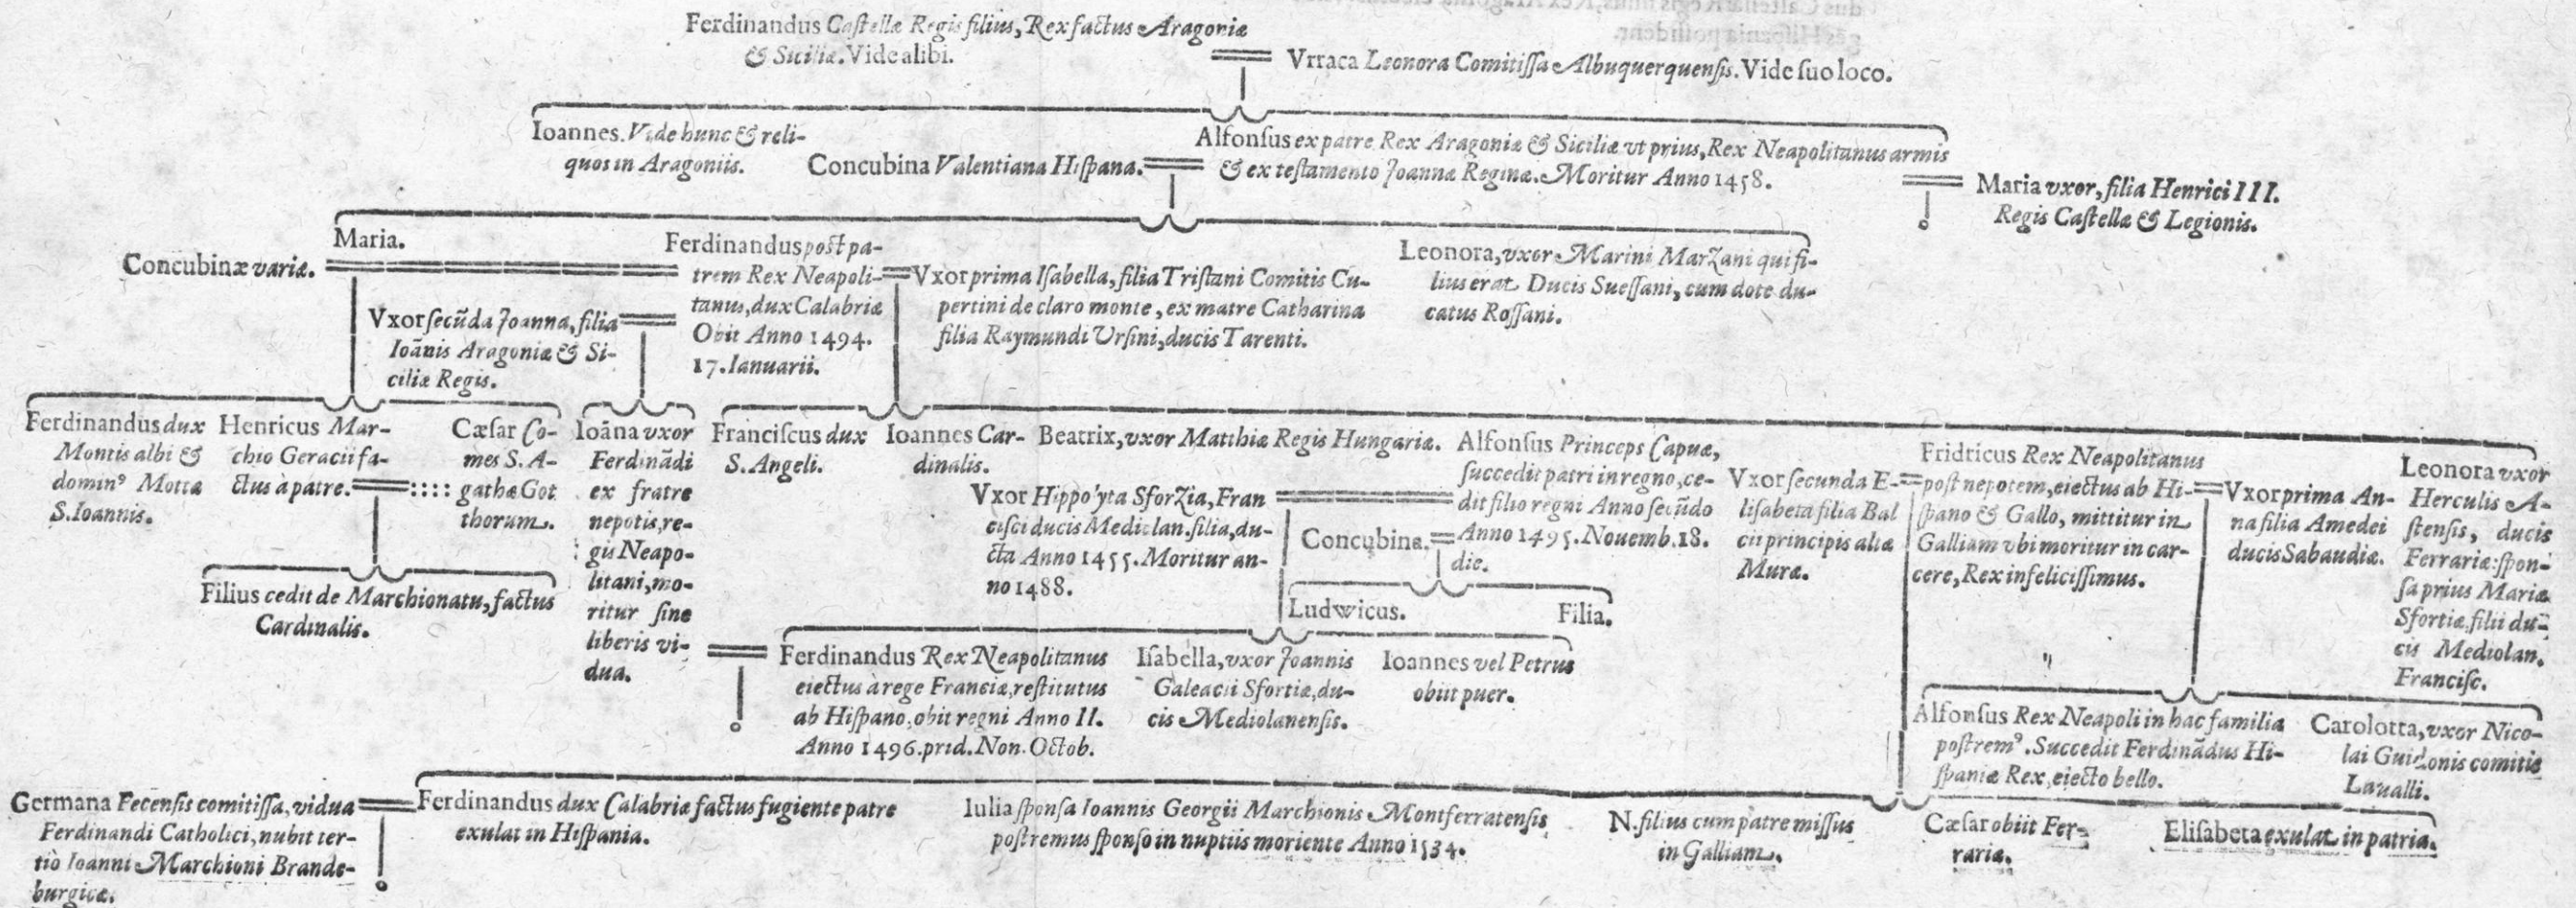 Ferdinandus Castellæ Regis filius, Rex factus Aragoniæ
& Siciliæ. Vide alibi.
Vrraca Leonora Comitissa Albuquerquensis. Vide suo loco.
Ioannes. Vide hunc & reli-
quos in Aragoniis.
Concubina Valentiana Hispana.
Alfonsus ex patre Rex Aragoniæ & Siciliæ vt prius, Rex Neapolitanus armis
& ex testamento Joannæ Reginæ. Moritur Anno 1458.
Maria vxor, filia Henrici III.
Regis Castellæ & Legionis.
Maria.
Concubinæ variæ.
Ferdinandus post pa-
trem Rex Neapoli-
tanus, dux Calabriæ
Obit Anno 1494.
17. Ianuarii.
Vxor prima Isabella, filia Tristani Comitis Cu-
pertini de claro monte, ex matre Catharina
filia Raymundi Ursini, ducis Tarenti.
Leonora, vxor Marini Marzani qui fi-
lius erat Ducis Suessani, cum dote du-
catus Rossani.
Vxor secūda Joanna, filia
Ioānis Aragoniæ & Si-
ciliæ Regis.
Ferdinandus dux
Montis albi &
dominꝰ Mottæ
S. Ioannis.
Henricus Mar-
chio Geracii fa-
ctus à patre.
Cæsar Co-
mes S. A-
gathæ Got
thorum.
Ioāna vxor
Ferdinādi
ex fratre
nepotis, re-
gis Neapo-
litani, mo-
ritur sine
liberis vi-
dua.
Franciscus dux
S. Angeli.
Ioannes Car-
dinalis.
Beatrix, vxor Matthiæ Regis Hungariæ.
Vxor Hippolyta Sforzia, Fran
cisci ducis Mediolan. filia, du-
cta Anno 1455. Moritur an-
no 1488.
Alfonsus Princeps Capuæ,
succedit patri in regno, ce-
dit filio regni Anno secūdo
Anno 1495. Nouemb. 18.
die.
Concubina.
Vxor secunda E-
lisabeta filia Bal
cii principis altæ
Muræ.
Fridricus Rex Neapolitanus
post nepotem, eiectus ab Hi-
spano & Gallo, mittitur in
Galliam vbi moritur in car-
cere, Rex infelicissimus.
Vxor prima An-
na filia Amedei
ducis Sabaudiæ.
Leonora vxor
Herculis A-
stensis, ducis
Ferrariæ: spon-
sa prius Mariæ
Sfortiæ, filii du-
cis Mediolan.
Francisc.
Filius cedit de Marchionatu, factus
Cardinalis.
Ludwicus.
Filia.
Ferdinandus Rex Neapolitanus
eiectus à rege Franciæ, restitutus
ab Hispano, obit regni Anno II.
Anno 1496. prid. Non. Octob.
Isabella, vxor Joannis
Galeacii Sfortiæ, du-
cis Mediolanensis.
Ioannes vel Petrus
obiit puer.
Alfonsus Rex Neapoli in hac familia
postremꝰ. Succedit Ferdinādus Hi-
spaniæ Rex, eiecto bello.
Carolotta, vxor Nico-
lai Guidonis comitis
Laualli.
Germana Fecensis comitissa, vidua
Ferdinandi Catholici, nubit ter-
tiò Ioanni Marchioni Brande-
burgicæ.
Ferdinandus dux Calabriæ factus fugiente patre
exulat in Hispania.
Iulia sponsa Ioannis Georgii Marchionis Montferratensis
postremus sponso in nuptiis moriente Anno 1534.
N. filius cum patre missus
in Galliam.
Cæsar obiit Fer-
rariæ.
Elisabeta exulat in patria.